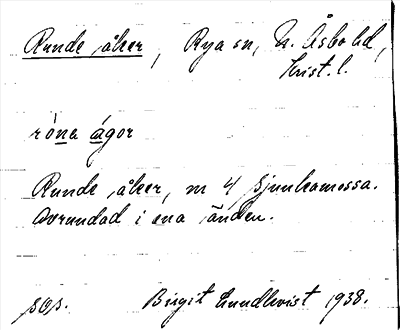 Runde åker, Rya sn, N. Åsbo hd,
Krist. l.
róna ágor
Runde åker, nr 4 Sjunkamossa.
Avrundad i ena änden.
sOs. Birgit Lundkvist 1938.